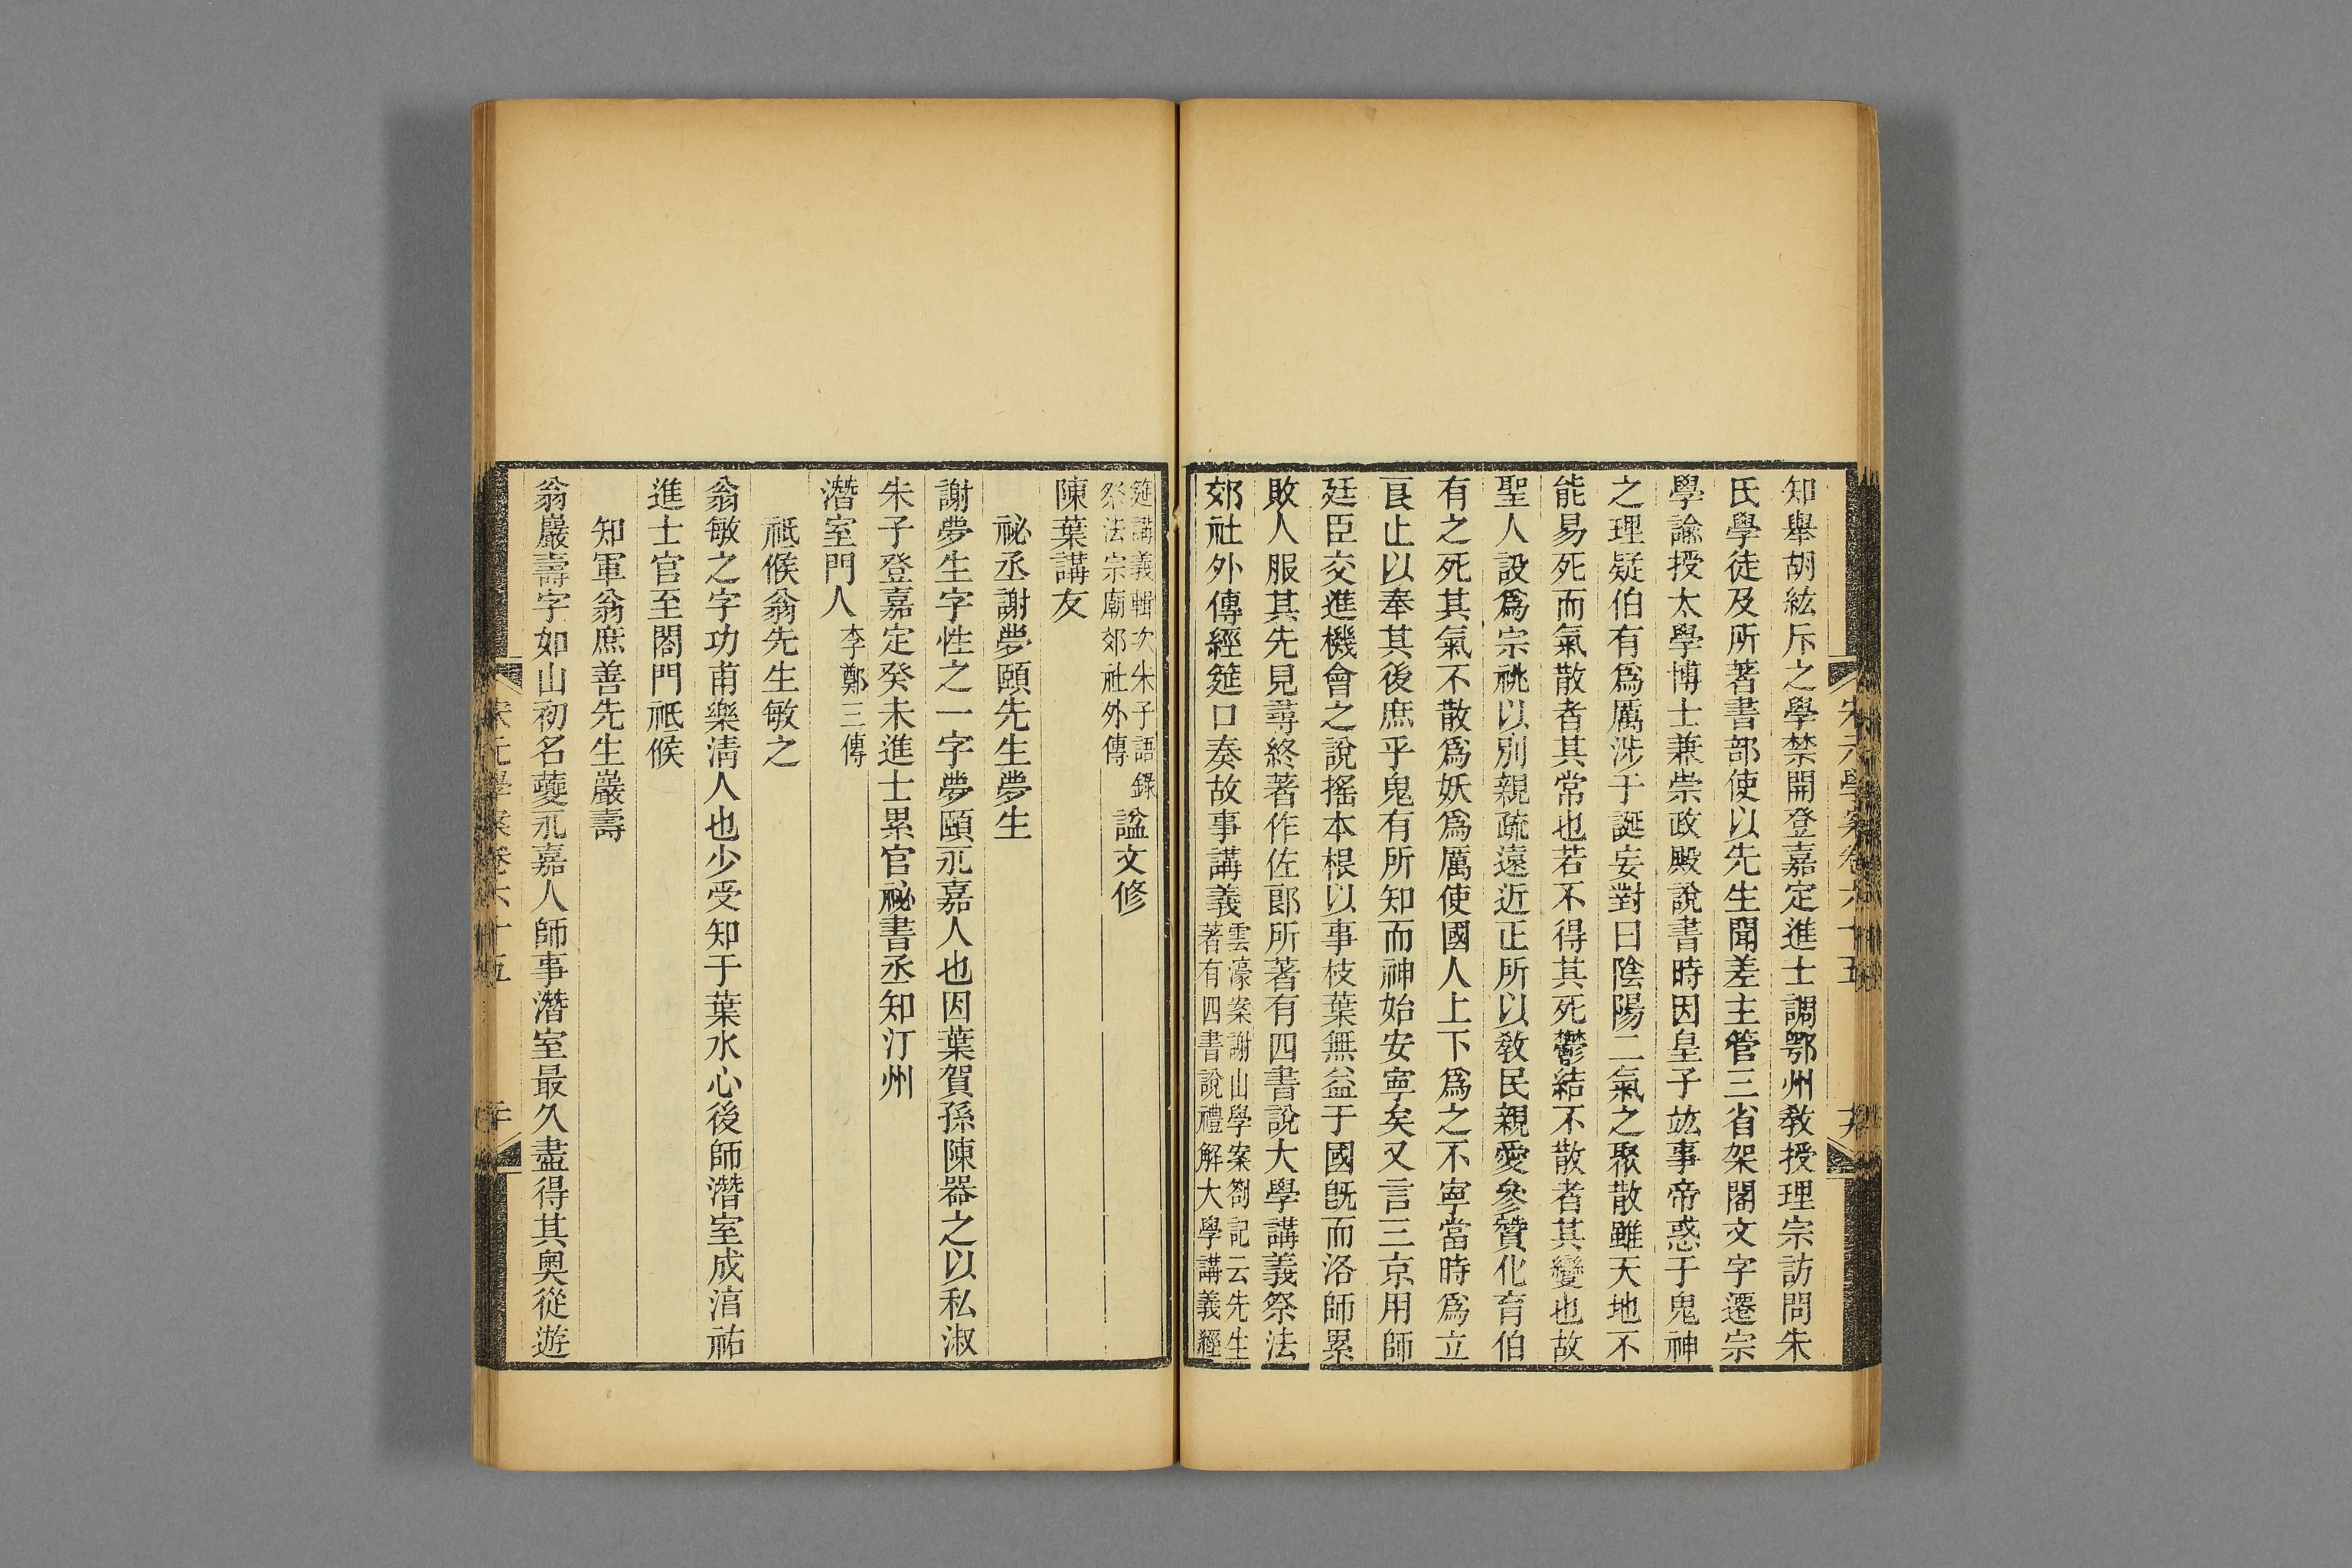 知舉胡紘斥之學禁開登嘉定進士調鄂州敎授理宗訪問朱
氏學徒及所著書部使以先生聞差主管三省架閣文字遷宗
學諭授太學博士兼崇政殿說書時因皇子竑事帝惑于鬼神
之理疑伯有爲厲涉于誕妄對曰陰陽二氣之聚散雖天地不
能易死而氣散者其常也若不得其死鬱結不散者其變也故
聖人設爲宗祧以別親疏遠近正所以敎民親愛參贊化育伯
有之死其氣不散爲妖爲厲使國人上下爲之不寧當時爲立
良止以奉其後庶乎鬼有所知而神始安寧矣又言三京用師
廷臣交進機會之說搖本根以事枝葉無益于國旣而洛師累
敗人服其先見尋終著作佐郞所著有四書說大學講義祭法
郊社外傳經筵口奏故事講義雲濠案謝山學案劄記云先生
著有四書說禮解大學講義經
筵講義輯次朱子語錄
祭法宗廟郊社外傳諡文修
陳葉講友
祕丞謝夢頤先生夢生
謝夢生字性之一字夢頤永嘉人也因葉賀孫陳器之以私淑
朱子登嘉定癸未進士累官祕書丞知汀州
潛室門人李鄭三傳
祗候翁先生敏之
翁敏之字功甫樂清人也少受知于葉水心後師潛室成淳祐
進士官至閤門祗候
知軍翁庶善先生巖壽
翁巖壽字如山初名夔永嘉人師事潛室最久盡得其奧從遊
宋元學案卷六十五